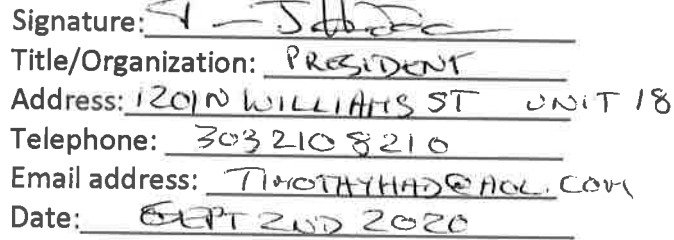 Signature:
Title/Organization: PRESIDENT
Address: 1201 N WILLIAMS ST UNIT 18
Telephone: 303 210 8210
Email address: TIMOTHYHAD@AOL.COM
Date: SEPT 2ND 2020